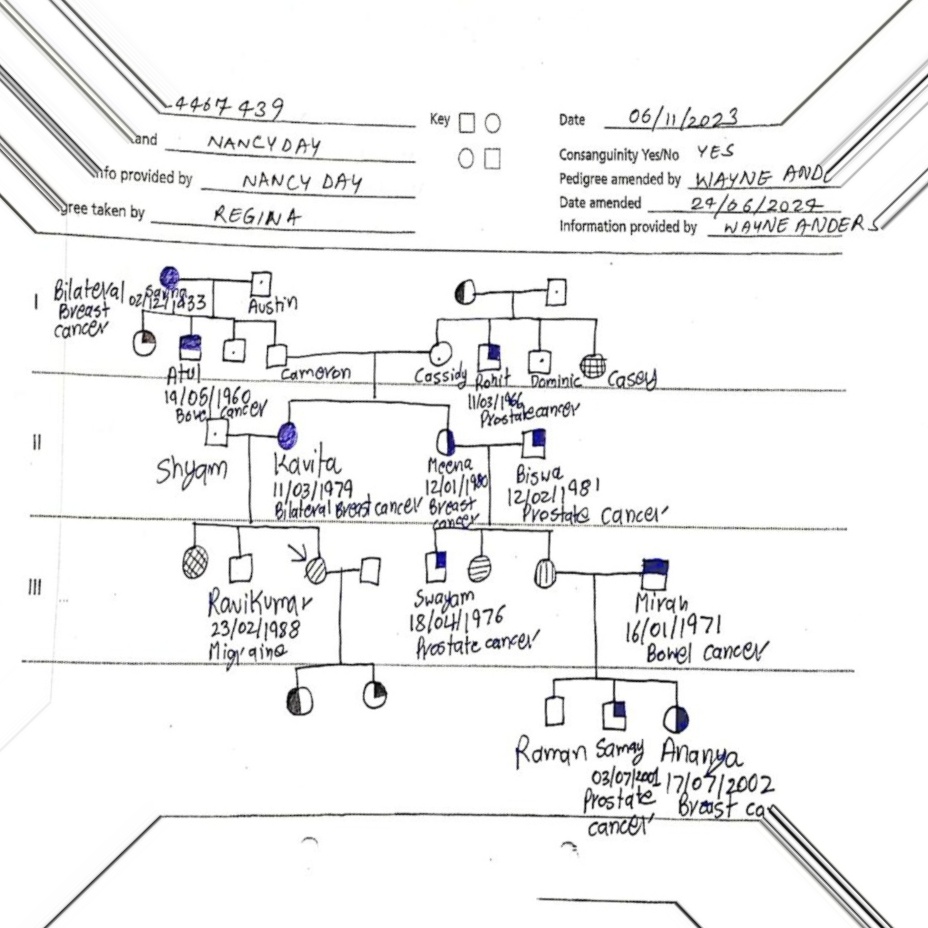 4467439
Key
Date 06/11/2023
and NANCY DAY
Consanguinity Yes/No YES
nfo provided by NANCY DAY
Pedigree amended by WAYNE AND
gree taken by REGINA
Date amended 24/06/2024
Information provided by WAYNE ANDERS
I
Bilateral
Breast
cancer
02/12/1933
Austin
Atul
19/05/1960
Bowel cancer
Cameron
Cassidy
Rohit
11/03/1966
Prostate cancer
Dominic
Casey
II
Shyam
Kavita
11/03/1979
Bilateral Breast cancer
Meena
12/01/1980
Breast
cancer
Biswa
12/02/1981
Prostate cancer
III
RaviKumar
23/02/1988
Migraine
Swayam
18/04/1976
Prostate cancer
Mirah
16/01/1971
Bowel cancer
Raman
Samay
03/07/2001
Prostate
cancer
Ananya
17/07/2002
Breast ca